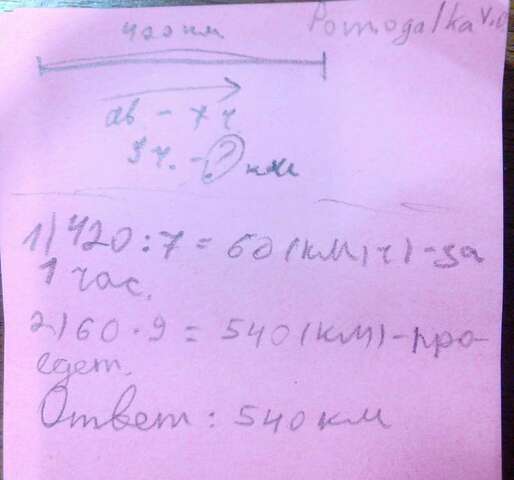 Pomogalka V.
420 км
ав - 7 ч
9 ч. - ? км
1) 420 : 7 = 60 (км/ч) - за
1 час.
2) 60 · 9 = 540 (км) - про-
едет.
Ответ : 540 км